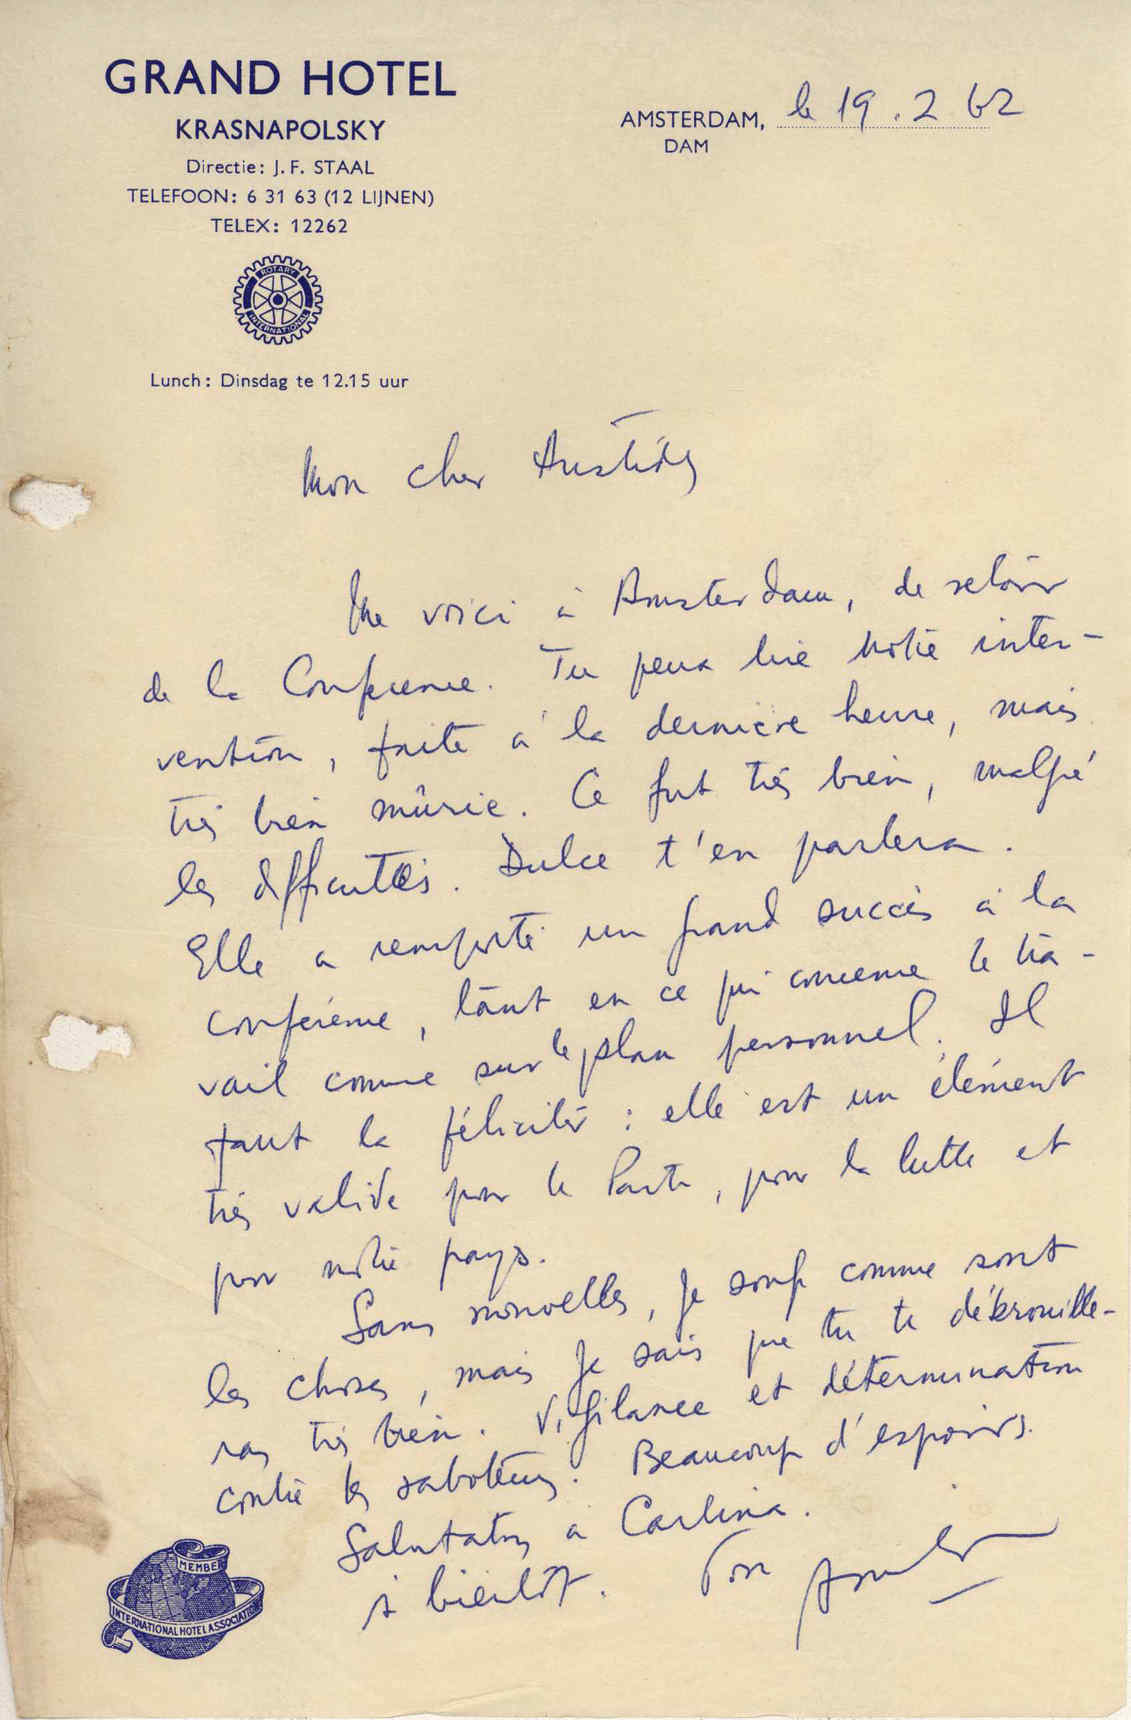 GRAND HOTEL
KRASNAPOLSKY
Directie: J. F. STAAL
TELEFOON: 6 31 63 (12 LIJNEN)
TELEX: 12262
ROTARY
INTERNATIONAL
Lunch: Dinsdag te 12.15 uur
AMSTERDAM, le 19.2.62
DAM
Mon cher Aristides
Me voici à Amsterdam, de retour
de la Conférence. Tu peux lire notre inter-
vention, faite à la dernière heure, mais
très bien mûrie. Ce fut très bien, malgré
les difficultés. Dulce t'en parlera.
Elle a remporté un grand succès à la
conférence, tant en ce qui concerne le tra-
vail comme sur le plan personnel. Il
faut la féliciter : elle est un élément
très valide pour le Parti, pour la lutte et
pour notre pays.
Sans nouvelles, je comme sont
les choses, mais je sais que tu te débrouille-
ras très bien. Vigilance et détermination
contre les saboteurs. Beaucoup d'espoirs.
Salutations à Carlina.
à bientôt. Ton
MEMBER
INTERNATIONAL HOTEL ASSOCIATION